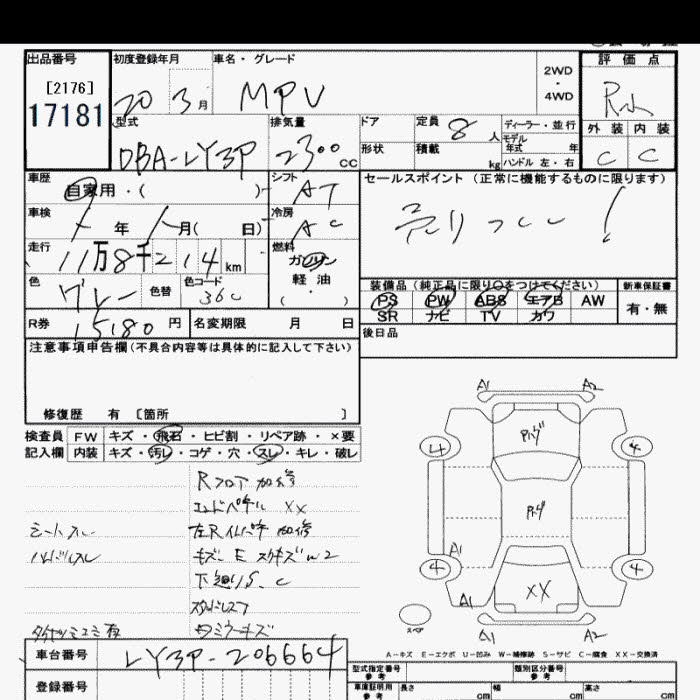 出品番号 初度登録年月 車名・グレード 評価点
[2176]
17181 20 3月 MPV 2WD・4WD R
型式 排気量 ドア 定員 8人 ディーラー・並行 外装 内装
DBA-LY3P 2300cc 形状 積載 kg モデル年式 年 C C
ハンドル 左・右
車歴 自家用・( ) シフト AT セールスポイント (正常に機能するものに限ります)
車検 年 月( 日) 冷房 AC 売りつくし!
走行 11万8千214km 燃料 ガソリン
軽・油
( )
色 グレー 色替 色コード 36C
装備品 (純正品に限り○をつけてください) 新車保証書
PS PW ABS エアB AW 有・無
SR ナビ TV カワ
R券 15180円 名変期限 月 日 後日品
注意事項申告欄(不具合内容等は具体的に記入して下さい)
修復歴 有 〔箇所 〕
検査員 FW キズ・飛石・ヒビ割・リペア跡・×要
記入欄 内装 キズ・汚レ・コゲ・穴・スレ・キレ・破レ
Rフロア加修
エンドパネル XX
シートスレ 左Rインパネ加修
ハンドルスレ キズ E スリキズ W2
下廻り S. C
スタッドレス
タイヤ ミゾ 有 ミラーキズ
A1 A2
4 4
A1
4 4
A1 XX
スペア
A1 A2
A-キズ E-エクボ U-凹み W-補修跡 S-サビ C-腐食 XX-交換済
車台番号 LY3P-206664
型式指定番号 参考 類別区分番号 参考
登録番号 車庫証明用 参考 長さ cm 幅 cm 高さ cm